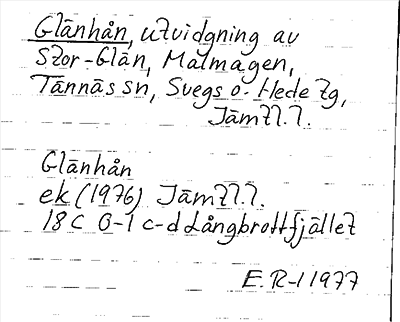 Glänhån, utvidgning av
Stor-Glän, Malmagen,
Tännäs sn, Svegs o. Hede tg,
Jämtl.l.
Glänhån
ek (1976) Jämtl.l.
18C 0-1 c-d Långbrottfjället
E. R-l 1977